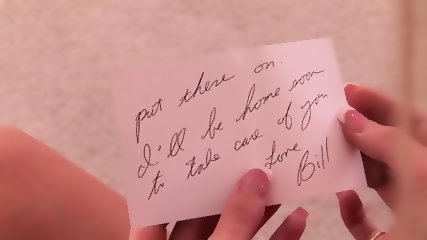 put these on.
I'll be home soon
to take care of you
Love
Bill